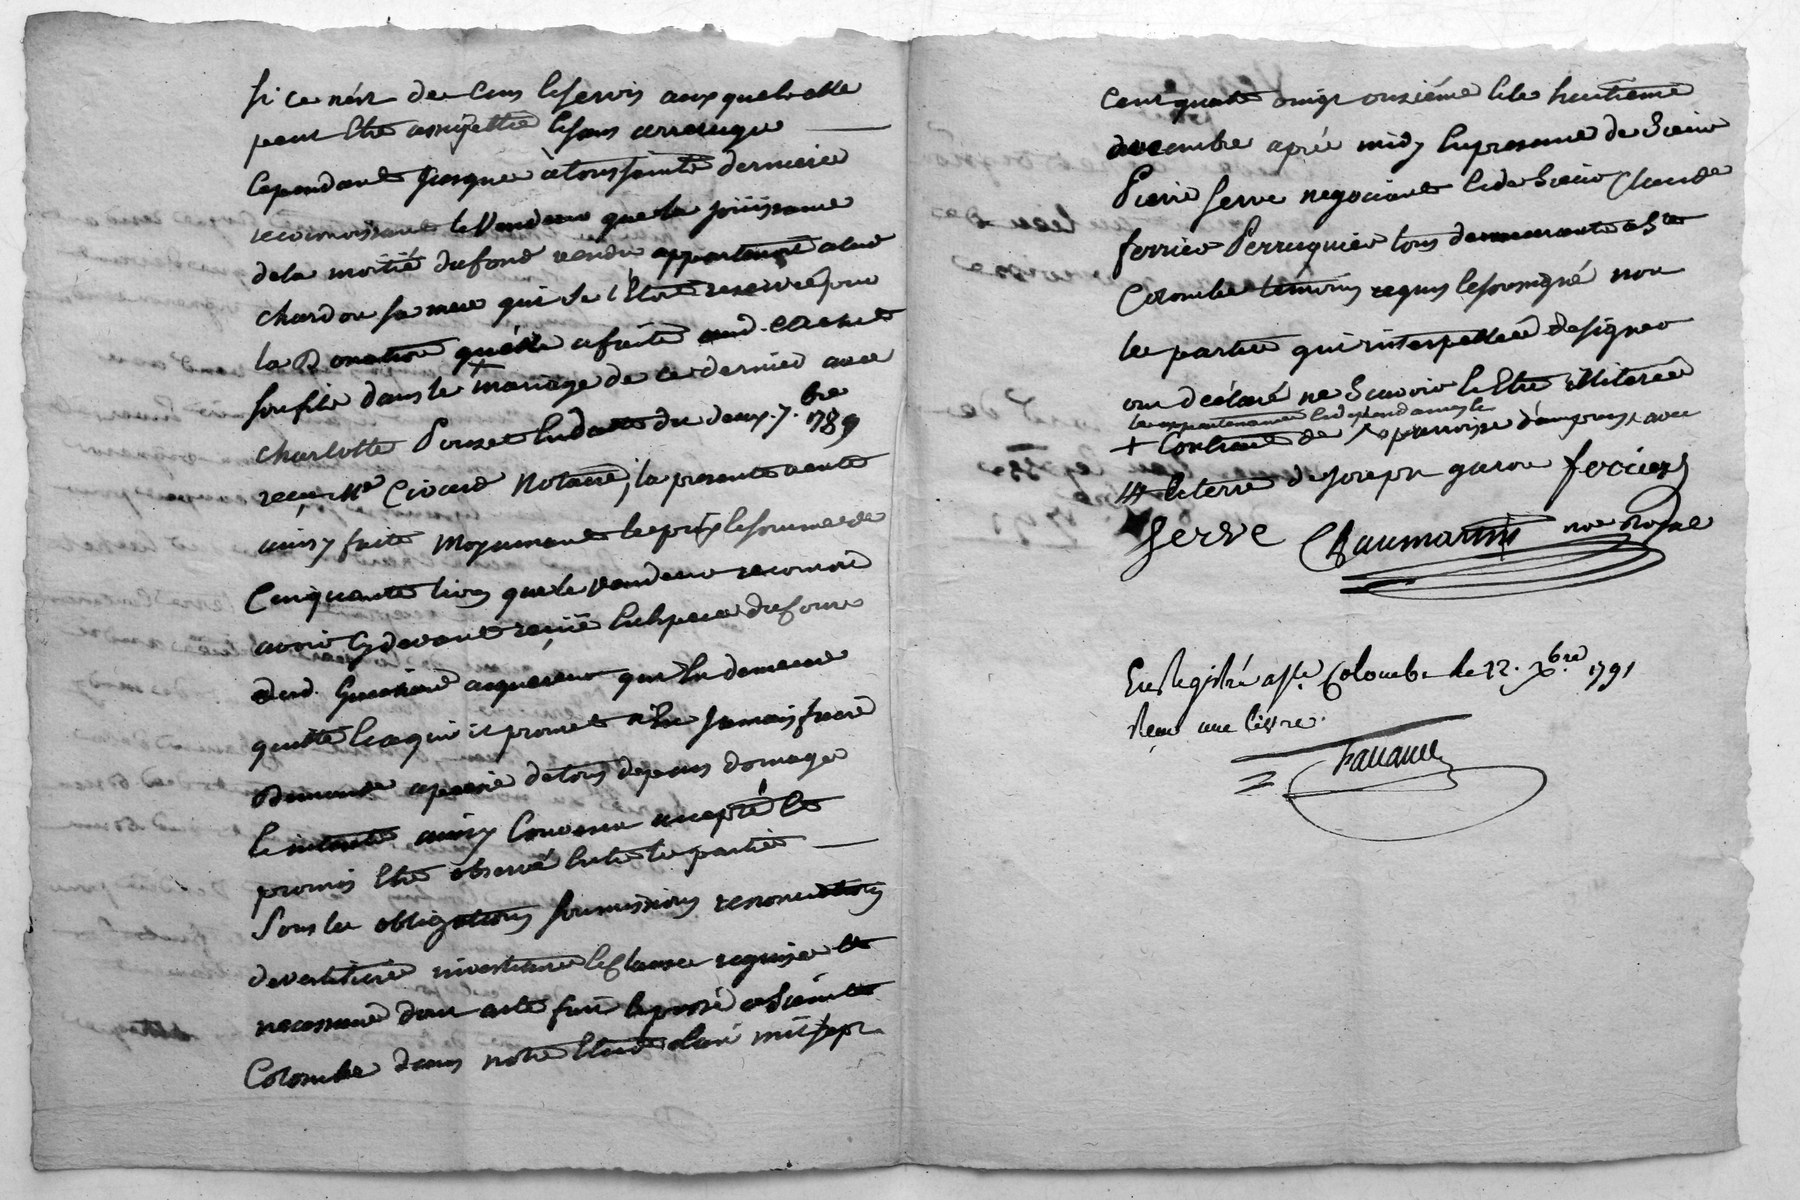 si ce nést de cens & servis aux quels elle
peut être assujettie & sans arrerage
cependant jusque à toussainte derniere
reconnoissant le Vendeur que la joüissance
de la moitié du fond vendu appartenoit à lad
chardon sa mere qui se l'étoit reservée pour
la Donation qu'elle a faite aud.
son fils dans le + mariage de ce dernier avec
charlotte Ponset en datte du deux 7.bre 1789
reçu Me Civard Notaire, la presente vente
ainsy faite moyennant le prix & somme de
Cinquante livres que le vendeur reconnoit
avoir cy devant reçüe en espece du cours
dud. acquereur qui en demeure
quitte & a qui il promet n'en jamais faire
demande a peine de tous depens domage
& interets ainsy Convenu accepté et
promis être observé entre les parties
Sous les obligations soumissions renonciations
devestiture investiture & clause requise et
necessaire dont acte fait & passé a Sainte
Colombe dans notre Etude l'an mil sept
cent quatre vingt onzième & le huitieme
decembre aprés midy En presence de Sieur
Pierre Serve negociant & de Sieur Claude
ferrier Perruquier tous demeurants a Ste
Colombe temoins requis & soussigné non
les parties qui interpellées de signer
ont déclaré ne Scavoir & être illiterées
les appartenances & dependances &
+ Contrant de paroisse d'ampuis avec
# & terre de Joseph garon ferrier
Serve Chaumartin nore Royal
Enregistré a Ste Colombe le 22. Xbre 1791
Reçu une livre.